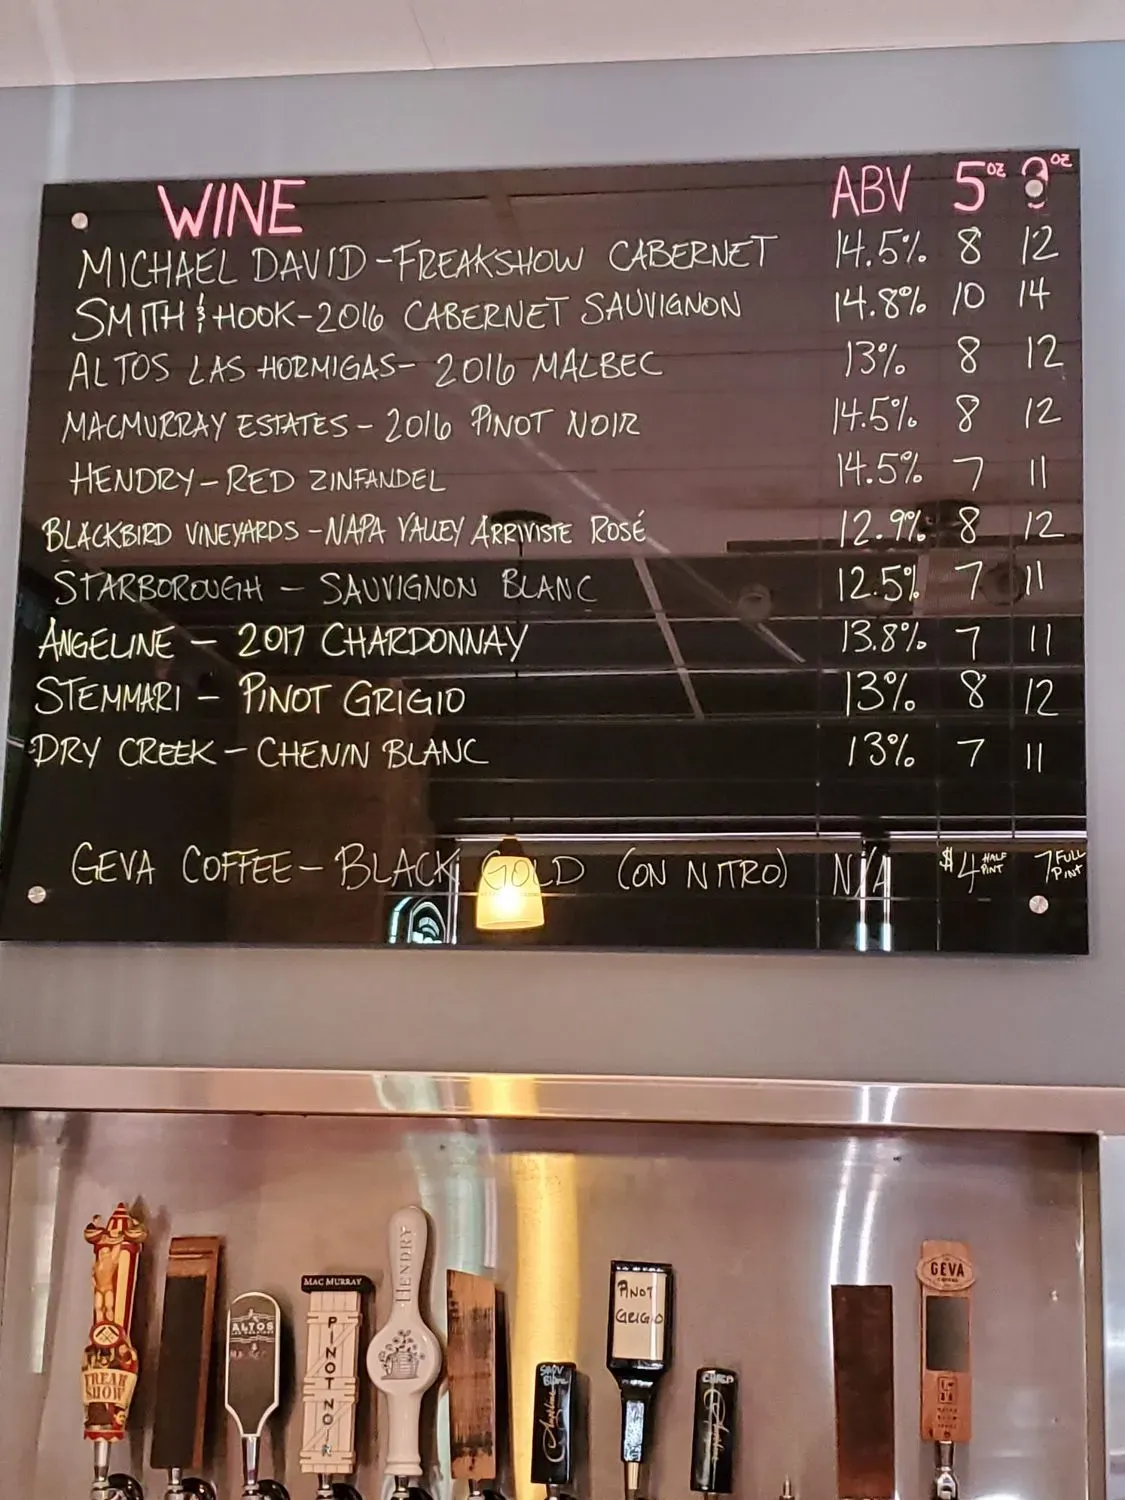 WINE ABV 5 OZ OZ
MICHAEL DAVID - FREAKSHOW CABERNET 14.5% 8 12
SMITH & HOOK - 2016 CABERNET SAUVIGNON 14.8% 10 14
ALTOS LAS HORMIGAS - 2016 MALBEC 13% 8 12
MACMURRAY ESTATES - 2016 PINOT NOIR 14.5% 8 12
HENDRY - RED ZINFANDEL 14.5% 7 11
BLACKBIRD VINEYARDS - NAPA VALLEY ARRIVISTE ROSÉ 12.9% 8 12
STARBOROUGH - SAUVIGNON BLANC 12.5% 7 11
ANGELINE - 2017 CHARDONNAY 13.8% 7 11
STEMMARI - PINOT GRIGIO 13% 8 12
DRY CREEK - CHENIN BLANC 13% 7 11
GEVA COFFEE - BLACK GOLD (ON NITRO) N/A $4 HALF PINT 7 FULL PINT
FREAK
SHOW
ALTOS
MAC MURRAY
PINOT NOIR
HENDRY
SAUV
BLANC
Angeline
PINOT
GRIGIO
CHARD
Angeline
GEVA